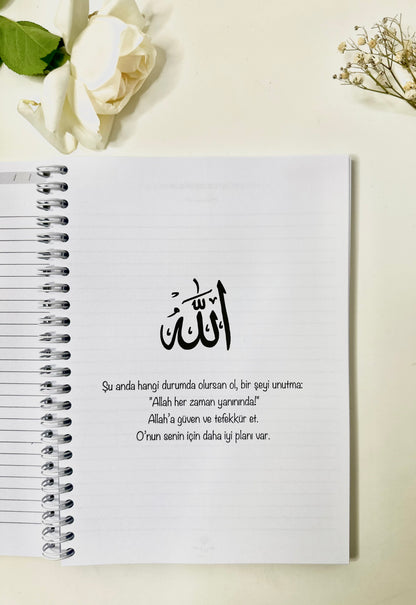 الله
Şu anda hangi durumda olursan ol, bir şeyi unutma:
"Allah her zaman yanınında!"
Allah'a güven ve tefekkür et.
O'nun senin için daha iyi planı var.